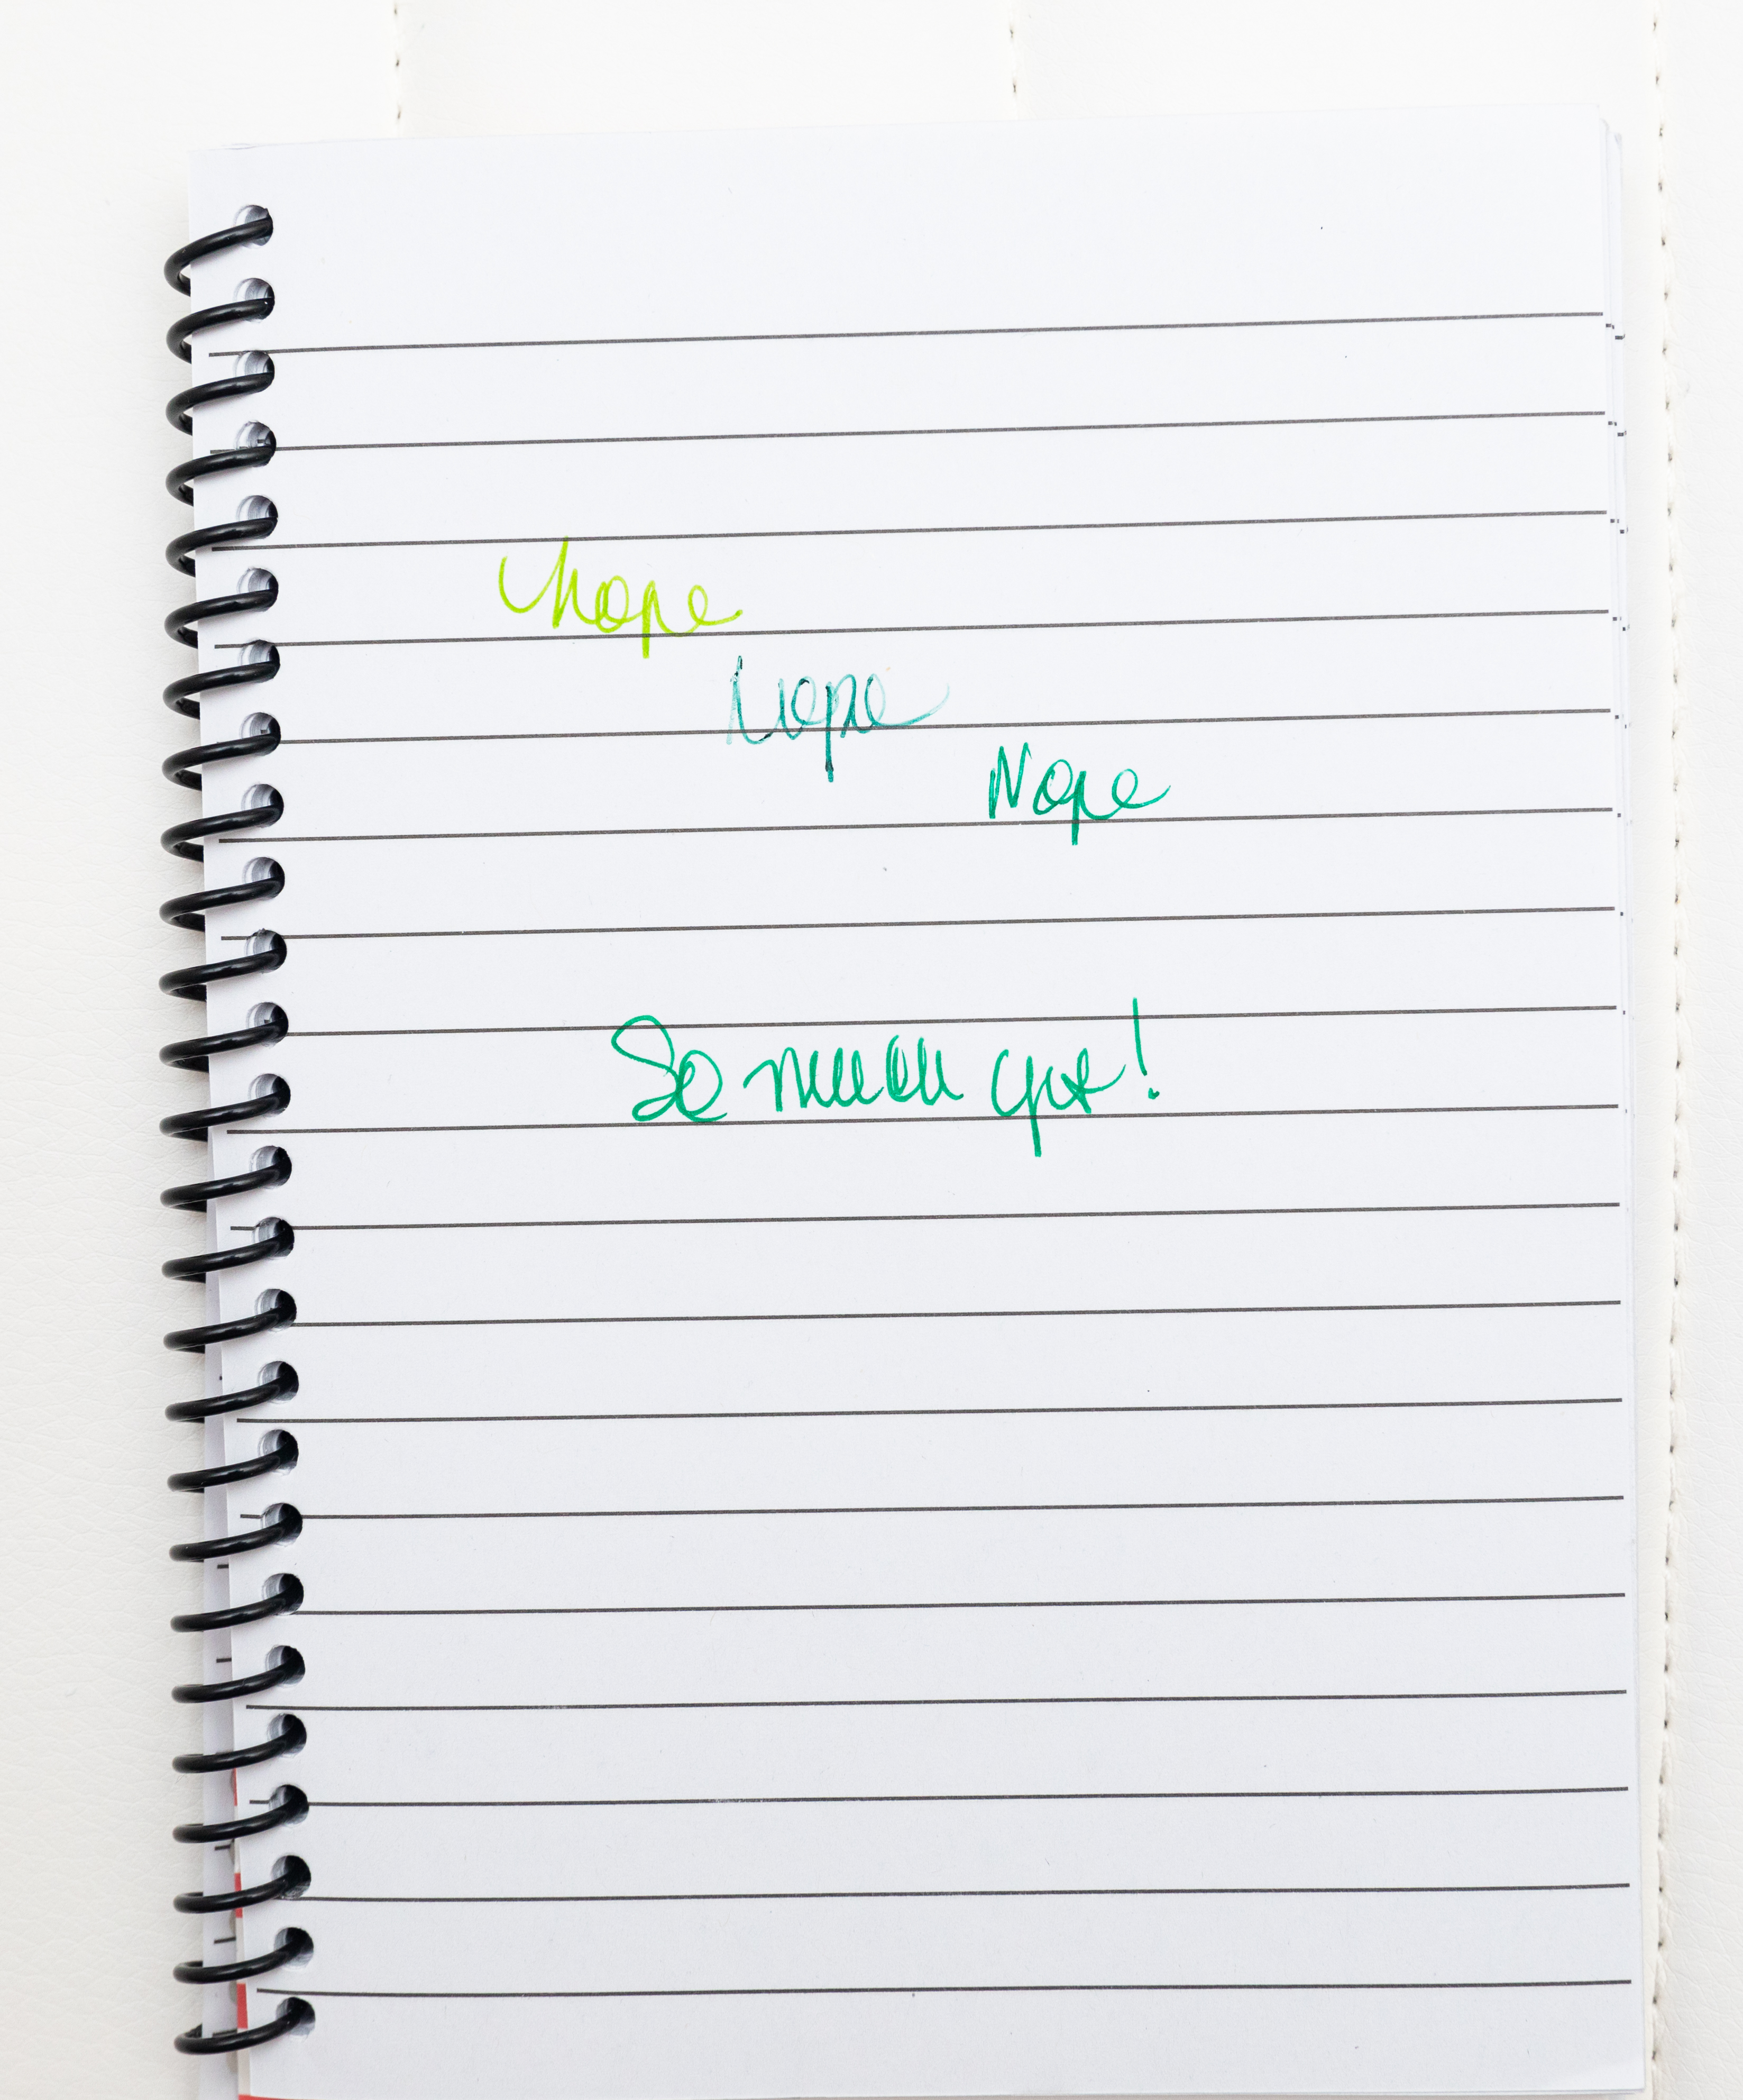 Nope
Nope
Nope
So much